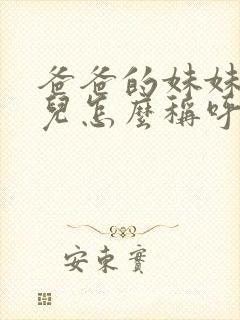 爸爸的妹妹
兒怎麼稱呼
安東實